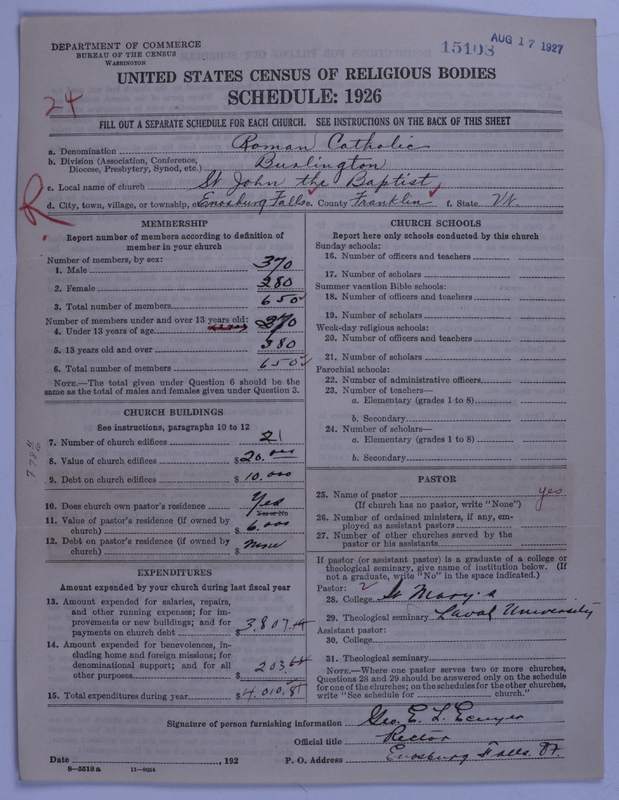 DEPARTMENT OF COMMERCE
BUREAU OF THE CENSUS
WASHINGTON
15108
AUG 17 1927
UNITED STATES CENSUS OF RELIGIOUS BODIES
SCHEDULE: 1926
24
FILL OUT A SEPARATE SCHEDULE FOR EACH CHURCH. SEE INSTRUCTIONS ON THE BACK OF THIS SHEET
a. Denomination Roman Catholic
b. Division (Association, Conference, Diocese, Presbytery, Synod, etc.) Burlington
c. Local name of church St John the Baptist
R
d. City, town, village, or township, Enosburg Falls e. County Franklin f. State Vt.
MEMBERSHIP
Report number of members according to definition of
member in your church
Number of members, by sex:
1. Male 370
2. Female 280
3. Total number of members 650
Number of members under and over 13 years old:
4. Under 13 years of age 270
5. 13 years old and over 380
6. Total number of members 650
NOTE.—The total given under Question 6 should be
the same as the total of males and females given under Question 3.
CHURCH BUILDINGS
See instructions, paragraphs 10 to 12
7. Number of church edifices 1
8. Value of church edifices $20.000
9. Debt on church edifices $10.000
10. Does church own pastor's residence Yes
Yes or No
11. Value of pastor's residence (if owned by
church) $6.000
12. Debt on pastor's residence (if owned by
church) $ none
EXPENDITURES
Amount expended by your church during last fiscal year
13. Amount expended for salaries, repairs,
and other running expenses; for im-
provements or new buildings; and for
payments on church debt $3.807.
14. Amount expended for benevolences, in-
cluding home and foreign missions; for
denominational support; and for all
other purposes $203,
15. Total expenditures during year $4,010.
CHURCH SCHOOLS
Report here only schools conducted by this church
Sunday schools:
16. Number of officers and teachers
17. Number of scholars
Summer vacation Bible schools:
18. Number of officers and teachers
19. Number of scholars
Week-day religious schools:
20. Number of officers and teachers
21. Number of scholars
Parochial schools:
22. Number of administrative officers
23. Number of teachers—
a. Elementary (grades 1 to 8)
b. Secondary
24. Number of scholars—
a. Elementary (grades 1 to 8)
b. Secondary
PASTOR
25. Name of pastor yes
(If church has no pastor, write "None")
26. Number of ordained ministers, if any, em-
ployed as assistant pastors
27. Number of other churches served by the
pastor or his assistants
If pastor (or assistant pastor) is a graduate of a college or
theological seminary, give name of institution below. (If
not a graduate, write "No" in the space indicated.)
Pastor:
28. College St Mary's
29. Theological seminary Laval University
Assistant pastor:
30. College
31. Theological seminary
NOTE.—Where one pastor serves two or more churches,
Questions 28 and 29 should be answered only on the schedule
for one of the churches; on the schedules for the other churches,
write "See schedule for church."
Signature of person furnishing information Geo. E. L. Ecuyer
Official title Rector
Date , 192 P. O. Address Enosburg Falls, Vt.
8—5518 a 11—9054